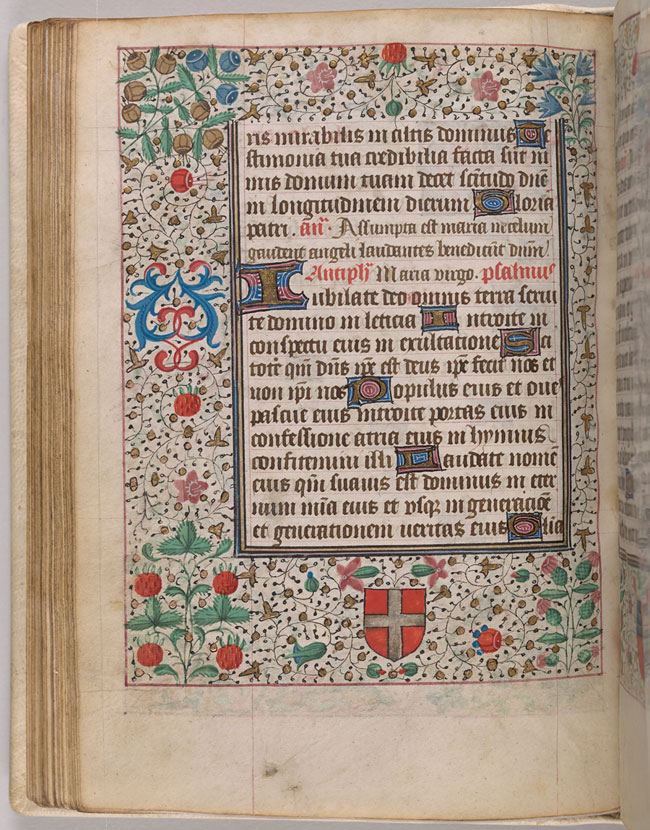 ris mirabilis in altis dominus Te
stimonia tua credibilia facta sūt ni
mis domum tuam decet sc̄itudo dn̄e
in longitudinem dierum Gloria
patri. an̄. Assumpta est maria in celum
gaudent angeli laudantes benedicūt dn̄m
Antiph̄ Maria virgo. psalmus
Iubilate deo omnis terra serui
te domino in leticia Introite in
conspectu eius in exultatione Sci
tote qm̄ dn̄s ip̄e est deus ip̄e fecit nos et
non ip̄i nos Populus eius et oue
pascue eius introite portas eius in
confessione atria eius in hymnis
confitemini illi Laudate nomē
eius qm̄ suauis est dominus in eter
num mīa eius et vsq̄ in generacioē
et generationem veritas eius Glia